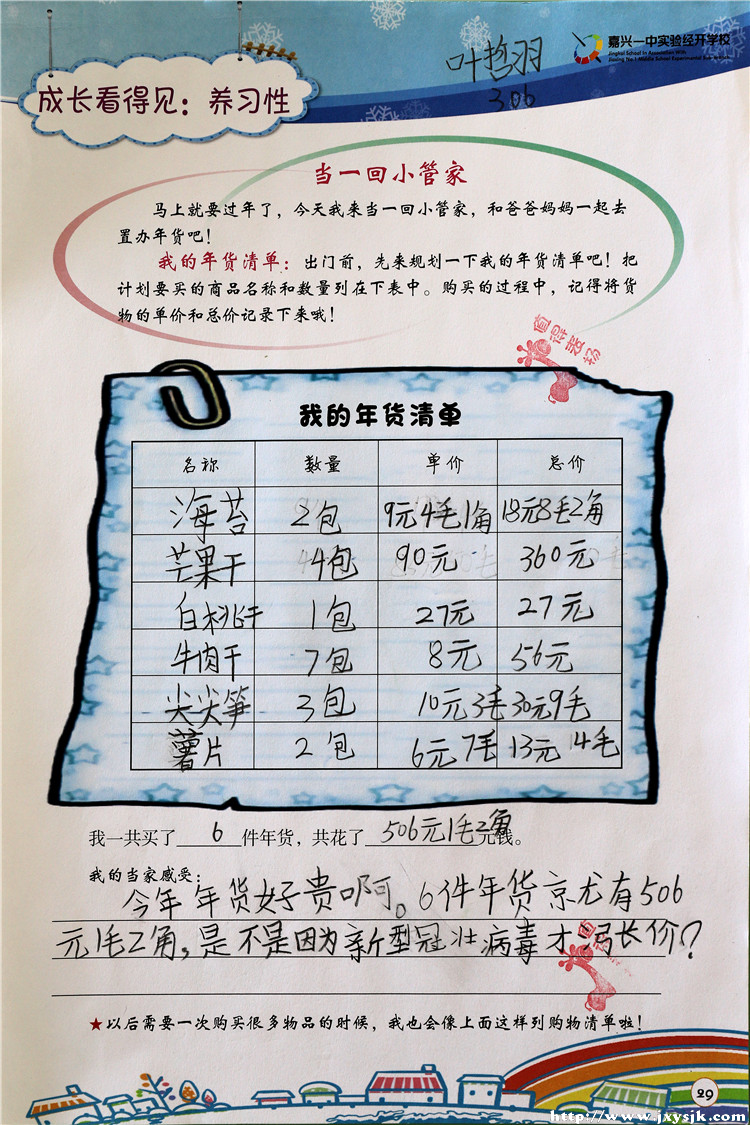 嘉兴一中实验经开学校
叶哲羽
306
成长看得见：养习性
当一回小管家
马上就要过年了，今天我来当一回小管家，和爸爸妈妈一起去
置办年货吧！
我的年货清单：出门前，先来规划一下我的年货清单吧！把
计划要买的商品名称和数量列在下表中。购买的过程中，记得将货
物的单价和总价记录下来哦！
值得表扬
我的年货清单
名称 数量 单价 总价
海苔 2包 9元4毛1角 18元8毛2角
芒果干 4包 90元 360元
白桃干 1包 27元 27元
牛肉干 7包 8元 56元
尖尖笋 3包 10元3毛 30元9毛
薯片 2包 6元7毛 13元14毛
我一共买了6件年货，共花了506元1毛2角元钱。
我的当家感受：
今年年货好贵啊。6件年货京尤有506
元1毛2角，是不是因为新型冠壮病毒才长价？
★以后需要一次购买很多物品的时候，我也会像上面这样列购物清单啦！
29
http://www.jxysjk.com